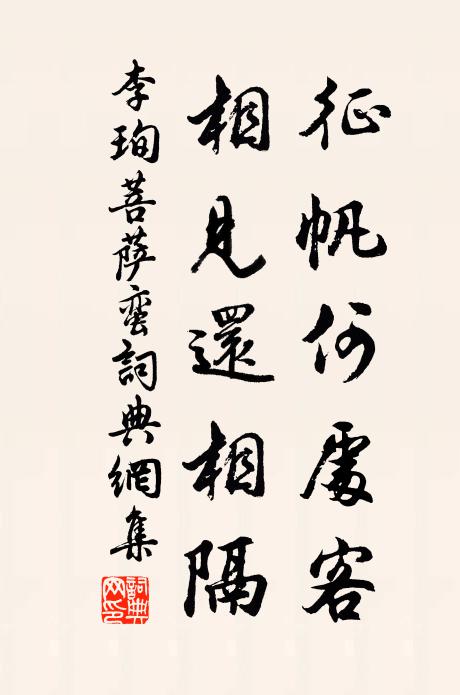 征帆何處客
相見還相隔
李珣菩薩蠻詞典網集
詞典網印